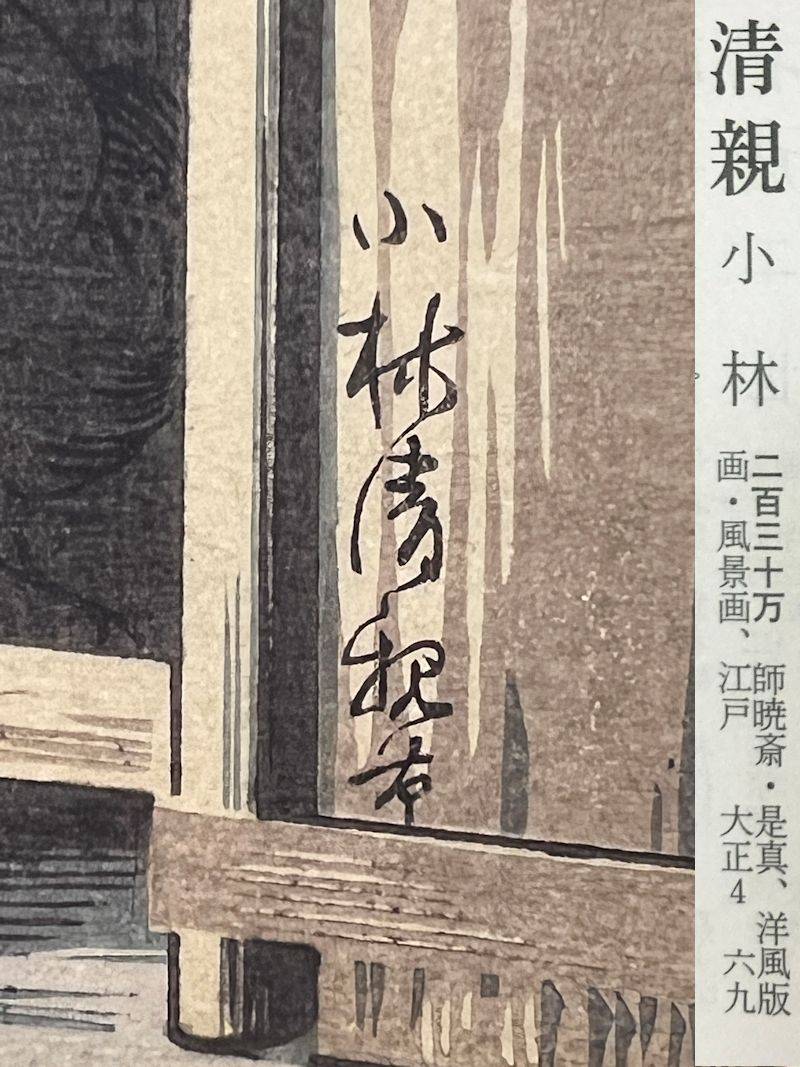 清親 小林
二百三十万 師暁斎・是真、洋風版
画・風景画、江戸 大正4 六九
小林清親